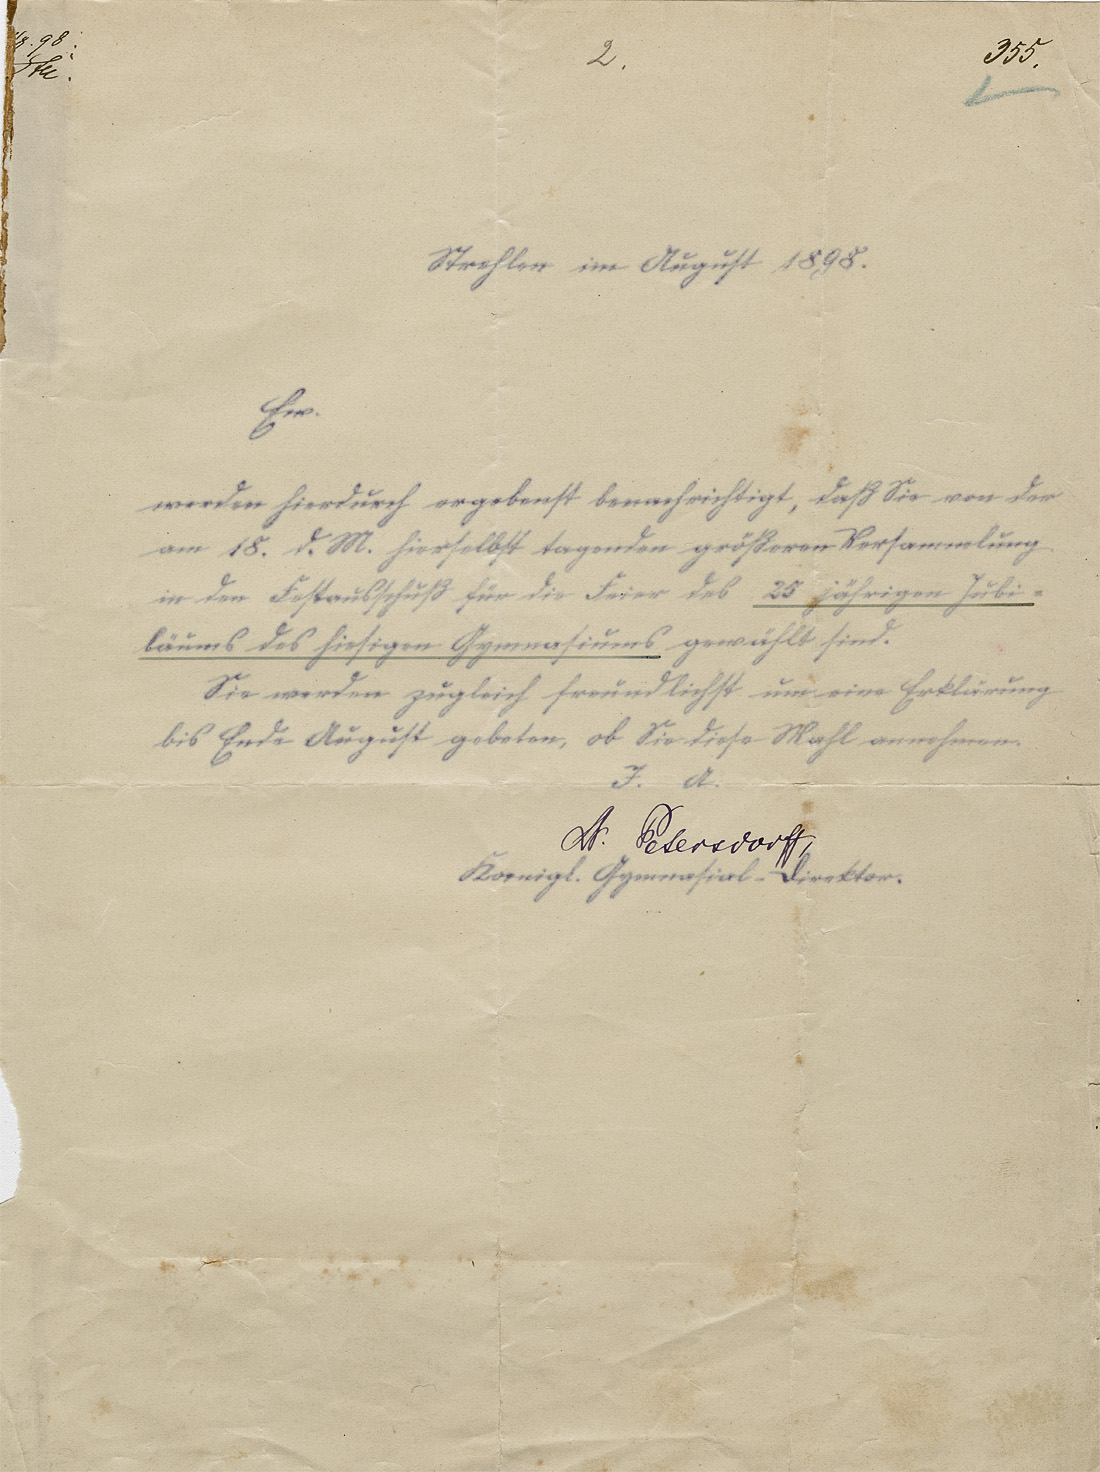 /8. 98.
2.
355.
Strehlen im August 1898.
Ew.
werden hierdurch ergebenst benachrichtigt, daß Sie von der
am 18. d. M. hierselbst tagenden größeren Versammlung
in den Festausschuß für die Feier des 25 jährigen Jubi-
läums des hiesigen Gymnasiums gewählt sind.
Sie werden zugleich freundlichst um eine Erklärung
bis Ende August gebeten, ob Sie diese Wahl annehmen.
I. A.
Dr. Petersdorff,
Koenigl. Gymnasial-Direktor.